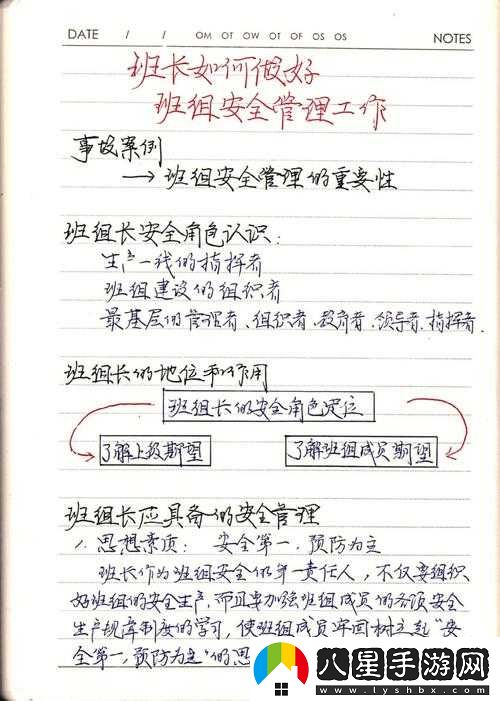 DATE / / OM OT OW OT OF OS OS NOTES
班长如何做好
班组安全管理工作
事故案例
→班组安全管理的重要性
班组长安全角色认识:
生产一线的指挥者
班组建设的组织者
最基层的管理者、组织者、教育者、领导者、指挥者.
班组长的地位和作用
班组长的安全角色定位
了解上级期望 了解班组成员期望
班组长应具备的安全管理
1. 思想素质: 安全第一,预防为主
班长作为班组安全的第一责任人,不仅要组织
好班组的安全生产,而且要加强班组成员的各项安全
生产规章制度的学习,使班组成员牢固树立起"安
全第一,预防为主"的思
八星手游网
www.lyshbx.com